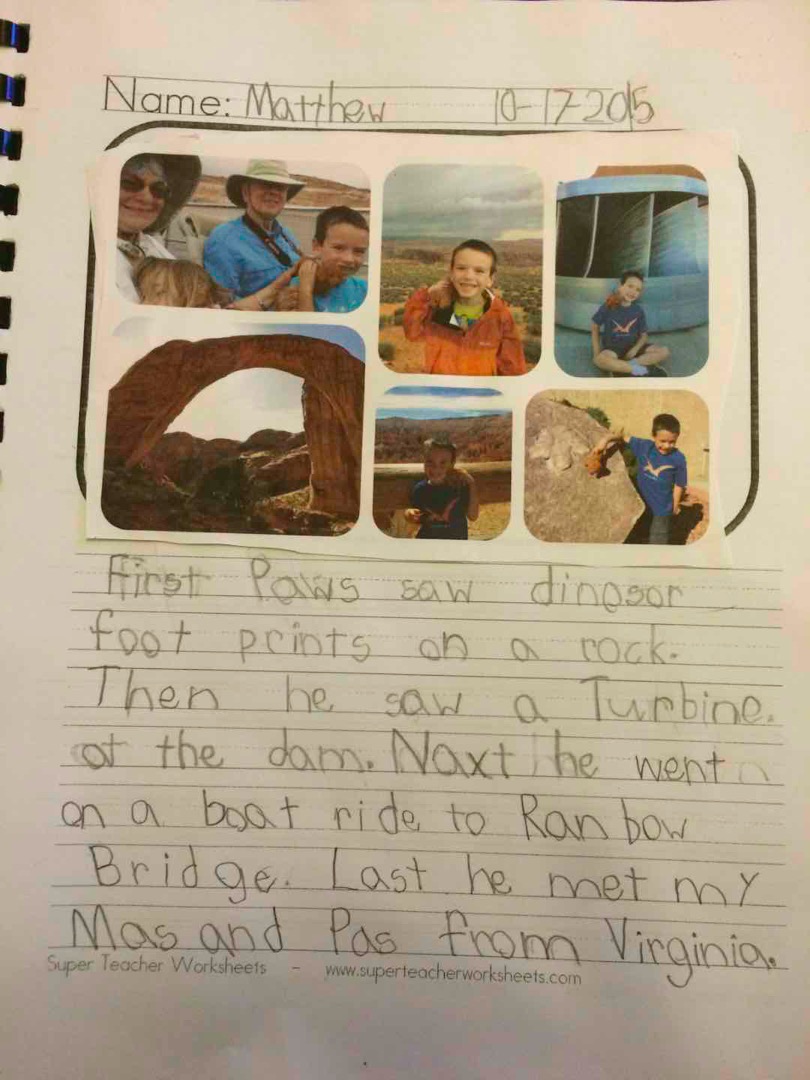 Name: Matthew 10-17-2015
First Paws saw dinosor
foot prints on a rock.
Then he saw a Turbine.
at the dam. Naxt he went
on a boat ride to Ranbow
Bridge. Last he met my
Mas and Pas from Virginia.
Super Teacher Worksheets - www.superteacherworksheets.com